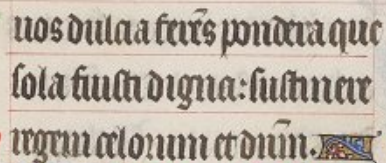 uos dulcia fere᷒s pondera que
sola fuisti digna: sustinere
regem celorum et dn̄m.